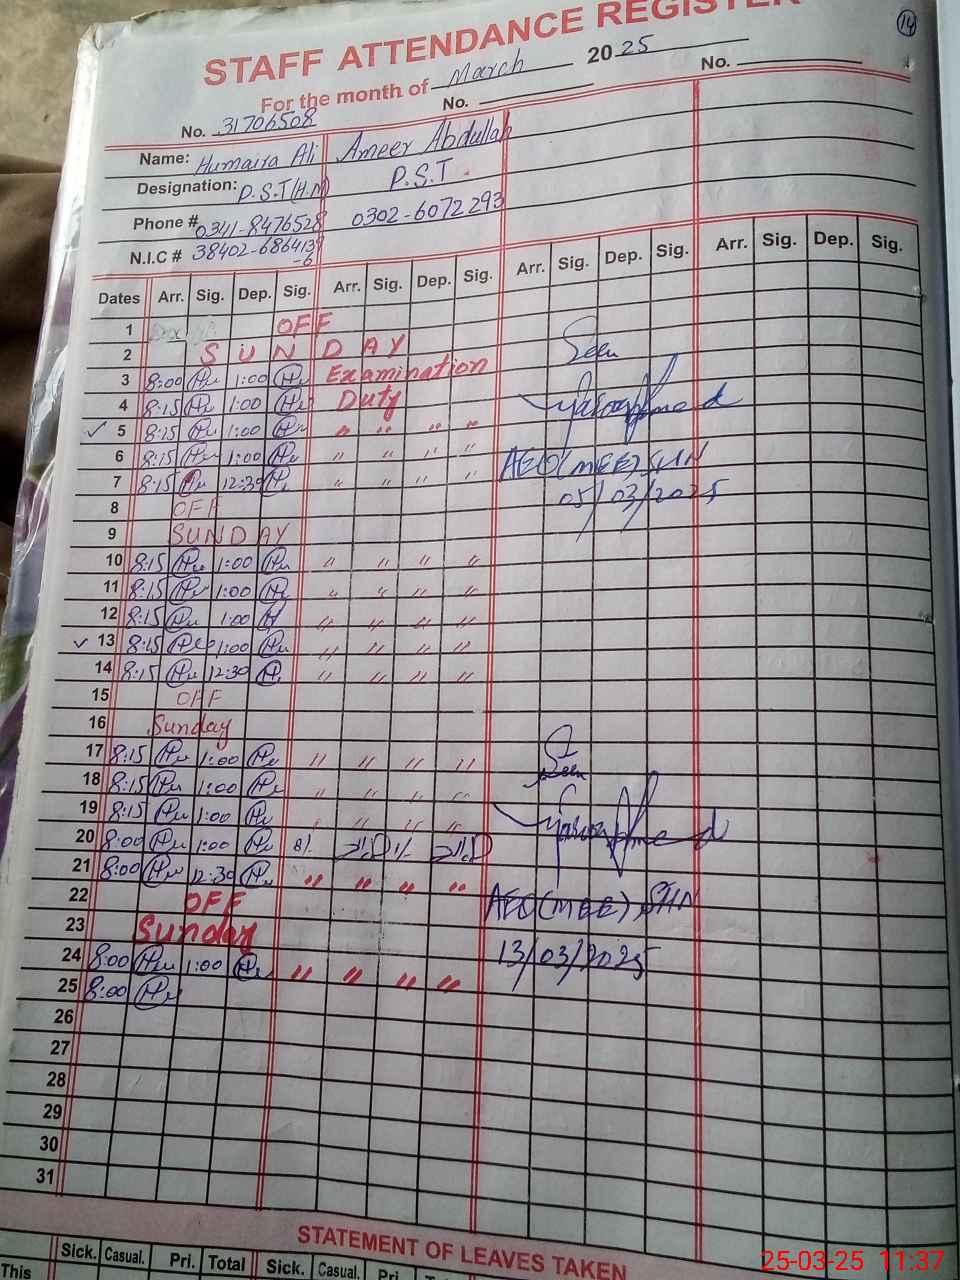 14
STAFF ATTENDANCE REGISTER
For the month of March 2025
No. 31706508 No. No.
Name: Humaira Ali Ameer Abdullah
Designation: P.S.T (H.M) P.S.T.
Phone # 0341-8476528 0302-6072293
N.I.C # 38402-6864139-6
Dates Arr. Sig. Dep. Sig. Arr. Sig. Dep. Sig. Arr. Sig. Dep. Sig. Arr. Sig. Dep. Sig.
1 OFF
2 SUNDAY Seen
3 8:00 Hu 1:00 Hu Examination
4 8:15 Hu 1:00 Hu Duty
✓ 5 8:15 Hu 1:00 Hu " " " "
6 8:15 Hu 1:00 Hu " " " " AEO(MEE)
7 8:15 Hu 12:30 Hu " " " " 05/03/2025
8 OFF
9 SUNDAY
10 8:15 Hu 1:00 Hu " " " "
11 8:15 Hu 1:00 Hu " " " "
12 8:15 Hu 1:00 H " " " "
✓ 13 8:15 Hu 1:00 Hu " " " "
14 8:15 Hu 12:30 H " " " "
15 OFF
16 Sunday
17 8:15 Hu 1:00 Hu " " " "
18 8:15 Hu 1:00 Hu " " " " Seen
19 8:15 Hu 1:00 Hu " " " "
20 8:00 Hu 1:00 Hu 8/- 1/-
21 8:00 Hu 12:30 Hu " " " "
22 OFF AEO(MEE)
23 Sunday
24 8:00 Hu 1:00 Hu " " " " 13/03/2025
25 8:00 Hu
26
27
28
29
30
31
STATEMENT OF LEAVES TAKEN
Sick. Casual. Pri. Total Sick. Casual. Pri.
This
25-03-25 11:37